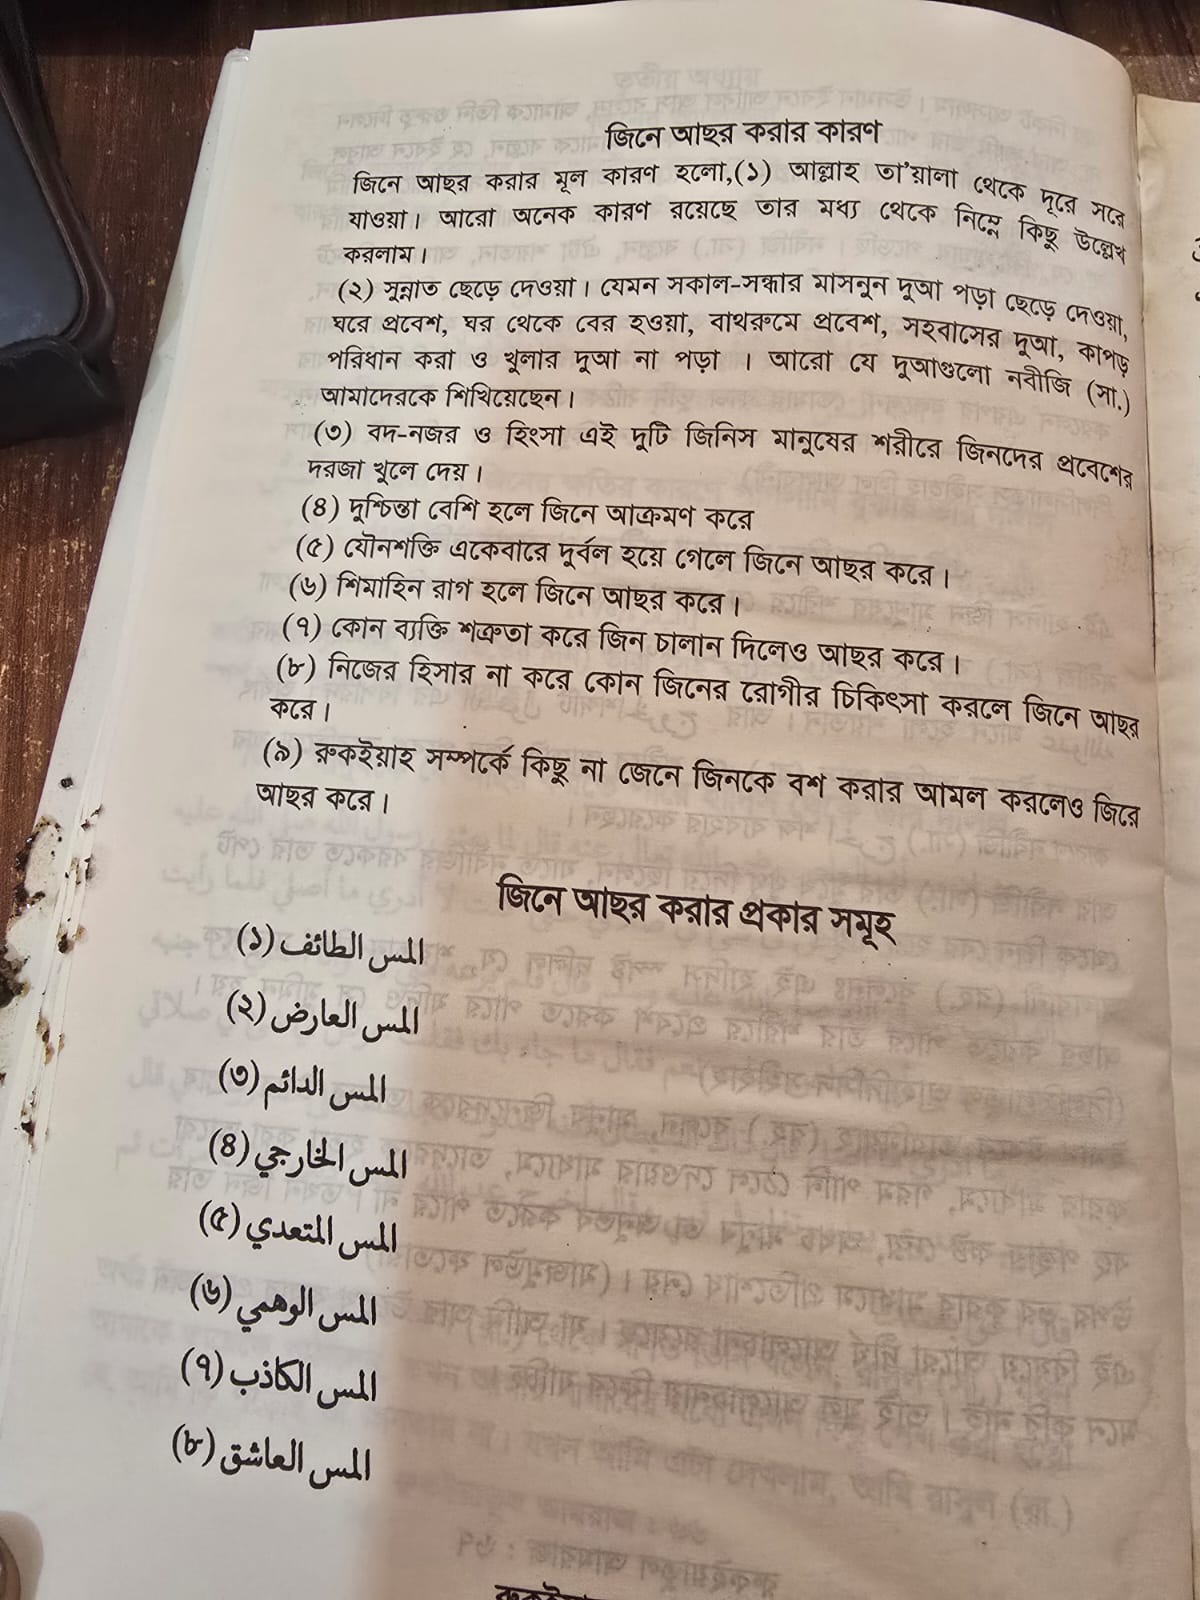 জিনে আছর করার কারণ
জিনে আছর করার মূল কারণ হলো,(১) আল্লাহ তা'য়ালা থেকে দূরে সরে
যাওয়া। আরো অনেক কারণ রয়েছে তার মধ্য থেকে নিম্নে কিছু উল্লেখ
করলাম।
(২) সুন্নাত ছেড়ে দেওয়া। যেমন সকাল-সন্ধার মাসনুন দুআ পড়া ছেড়ে দেওয়া,
ঘরে প্রবেশ, ঘর থেকে বের হওয়া, বাথরুমে প্রবেশ, সহবাসের দুআ, কাপড়
পরিধান করা ও খুলার দুআ না পড়া । আরো যে দুআগুলো নবীজি (সা.)
আমাদেরকে শিখিয়েছেন।
(৩) বদ-নজর ও হিংসা এই দুটি জিনিস মানুষের শরীরে জিনদের প্রবেশের
দরজা খুলে দেয়।
(৪) দুশ্চিন্তা বেশি হলে জিনে আক্রমণ করে
(৫) যৌনশক্তি একেবারে দুর্বল হয়ে গেলে জিনে আছর করে।
(৬) শিমাহিন রাগ হলে জিনে আছর করে।
(৭) কোন ব্যক্তি শত্রুতা করে জিন চালান দিলেও আছর করে।
(৮) নিজের হিসার না করে কোন জিনের রোগীর চিকিৎসা করলে জিনে আছর
করে।
(৯) রুকইয়াহ সম্পর্কে কিছু না জেনে জিনকে বশ করার আমল করলেও জিরে
আছর করে।
জিনে আছর করার প্রকার সমূহ
(১) المس الطائف
(২) المس العارض
(৩) المس الدائم
(৪) المس الخارجي
(৫) المس المتعدي
(৬) المس الوهمي
(৭) المس الكاذب
(৮) المس العاشق